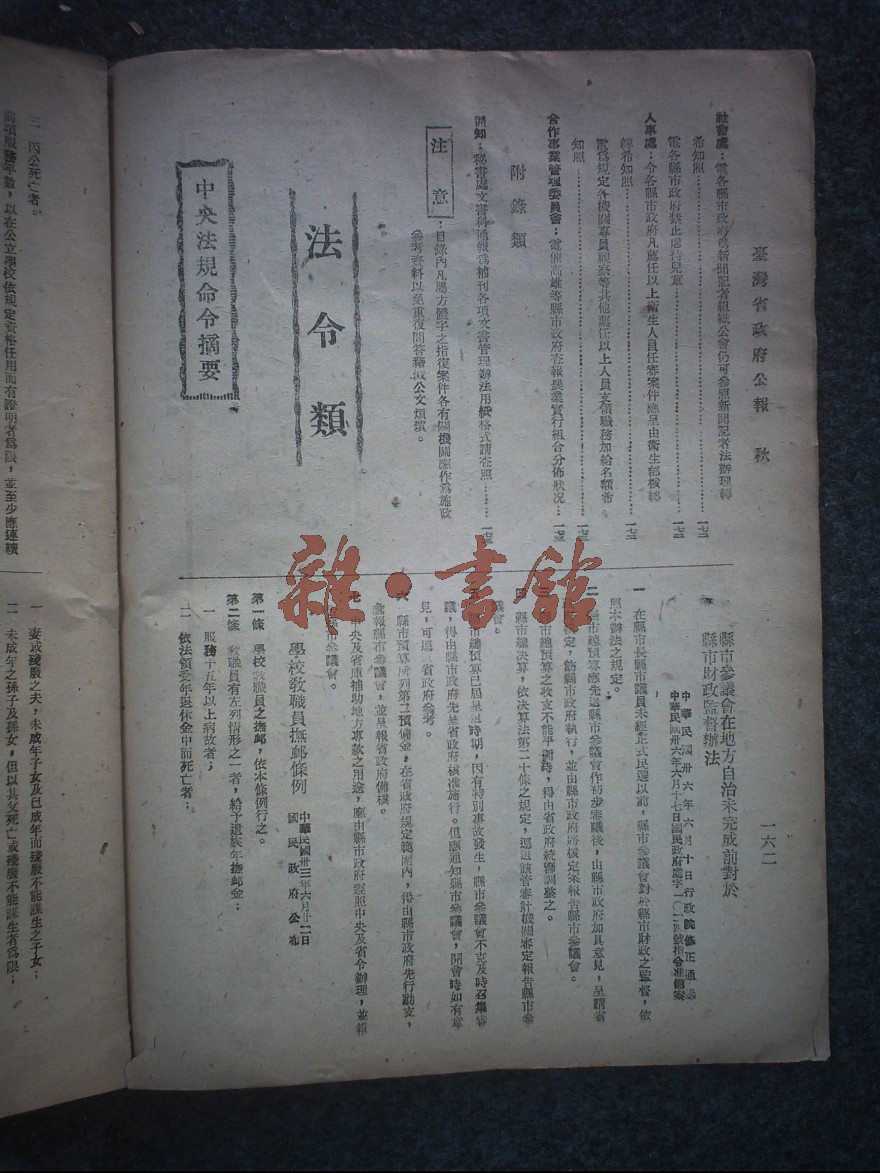 臺灣省政府公報　秋
一六二
社會處：電各縣市政府為新聞記者組織公會仍可參照新聞記者法辦理轉
希知照………一七三
電各縣市政府禁止虐待兒童………一七三
人事處：令各縣市政府凡薦任以上衛生人員任審案件應呈由衛生部核轉
轉希知照………一七三
電為規定各機關專員視察等其他薦任以上人員支領職務加給名額希
知照………一七三
合作事業管理委員會：電催高雄等縣市政府查報農業實行組合分佈狀況…一七三
附錄類
通知：秘書處文書科通報為補刊各項文書管理辦法用紙格式請查照………
注意：目錄內凡屬方體字之指復案件各有關機關應作為施政
參考資料以免重復問答藉減公文煩瑣。
法令類
中央法規命令摘要
縣市參議會在地方自治未完成前對於
縣市財政監督辦法
中華民國卅六年六月十日行政院修正通過
中華民國卅六年六月十七日國民政府處字一〇二四號指令准備案
一　在縣市長縣市議員未經正式民選以前，縣市參議會對於縣市財政之監督，依
照本辦法之規定。
二　縣市總預算應先送縣市參議會作初步審議後，由縣市政府加具意見，呈請省
核定，飭縣市政府執行，並由縣市政府將核定案報告縣市參議會。
三　縣市總預算之收支不能平衡時，得由省政府統籌調整之。
四　縣市總決算，依決算法第二十條之規定，逕送該管審計機關審定報告縣市參
議會。
市總預算已屆呈送時期，因有特別事故發生，縣市參議會不克及時召集審
議，得由縣市政府先呈省政府核准施行。但應通知縣市參議會，開會時如有意
見，可逕送省政府參考。
六　縣市預算所列第二預備金，在省政府規定範圍內，得由縣市政府先行動支，
彙報縣市參議會，並呈報省政府備核。
七　中央及省庫補助地方專款之用途，應由縣市政府遵照中央及省令辦理，並報
市參議會。
學校教職員撫卹條例
中華民國卅三年六月廿二日
國民政府公布
第一條　學校教職員之撫卹，依本條例行之。
第二條　教職員有左列情形之一者，給予遺族年撫卹金：
一　服務十五年以上病故者；
二　依法領受年退休金中而死亡者；
三　因公死亡者。
前項服務年數，以在公立學校依規定資格任用而有證明者為限，並至少應連續
一　妻或殘廢之夫，未成年子女及已成年而殘廢不能謀生之子女；
二　未成年之孫子及孫女，但以其父死亡或殘廢不能謀生者為限；
雜·書館